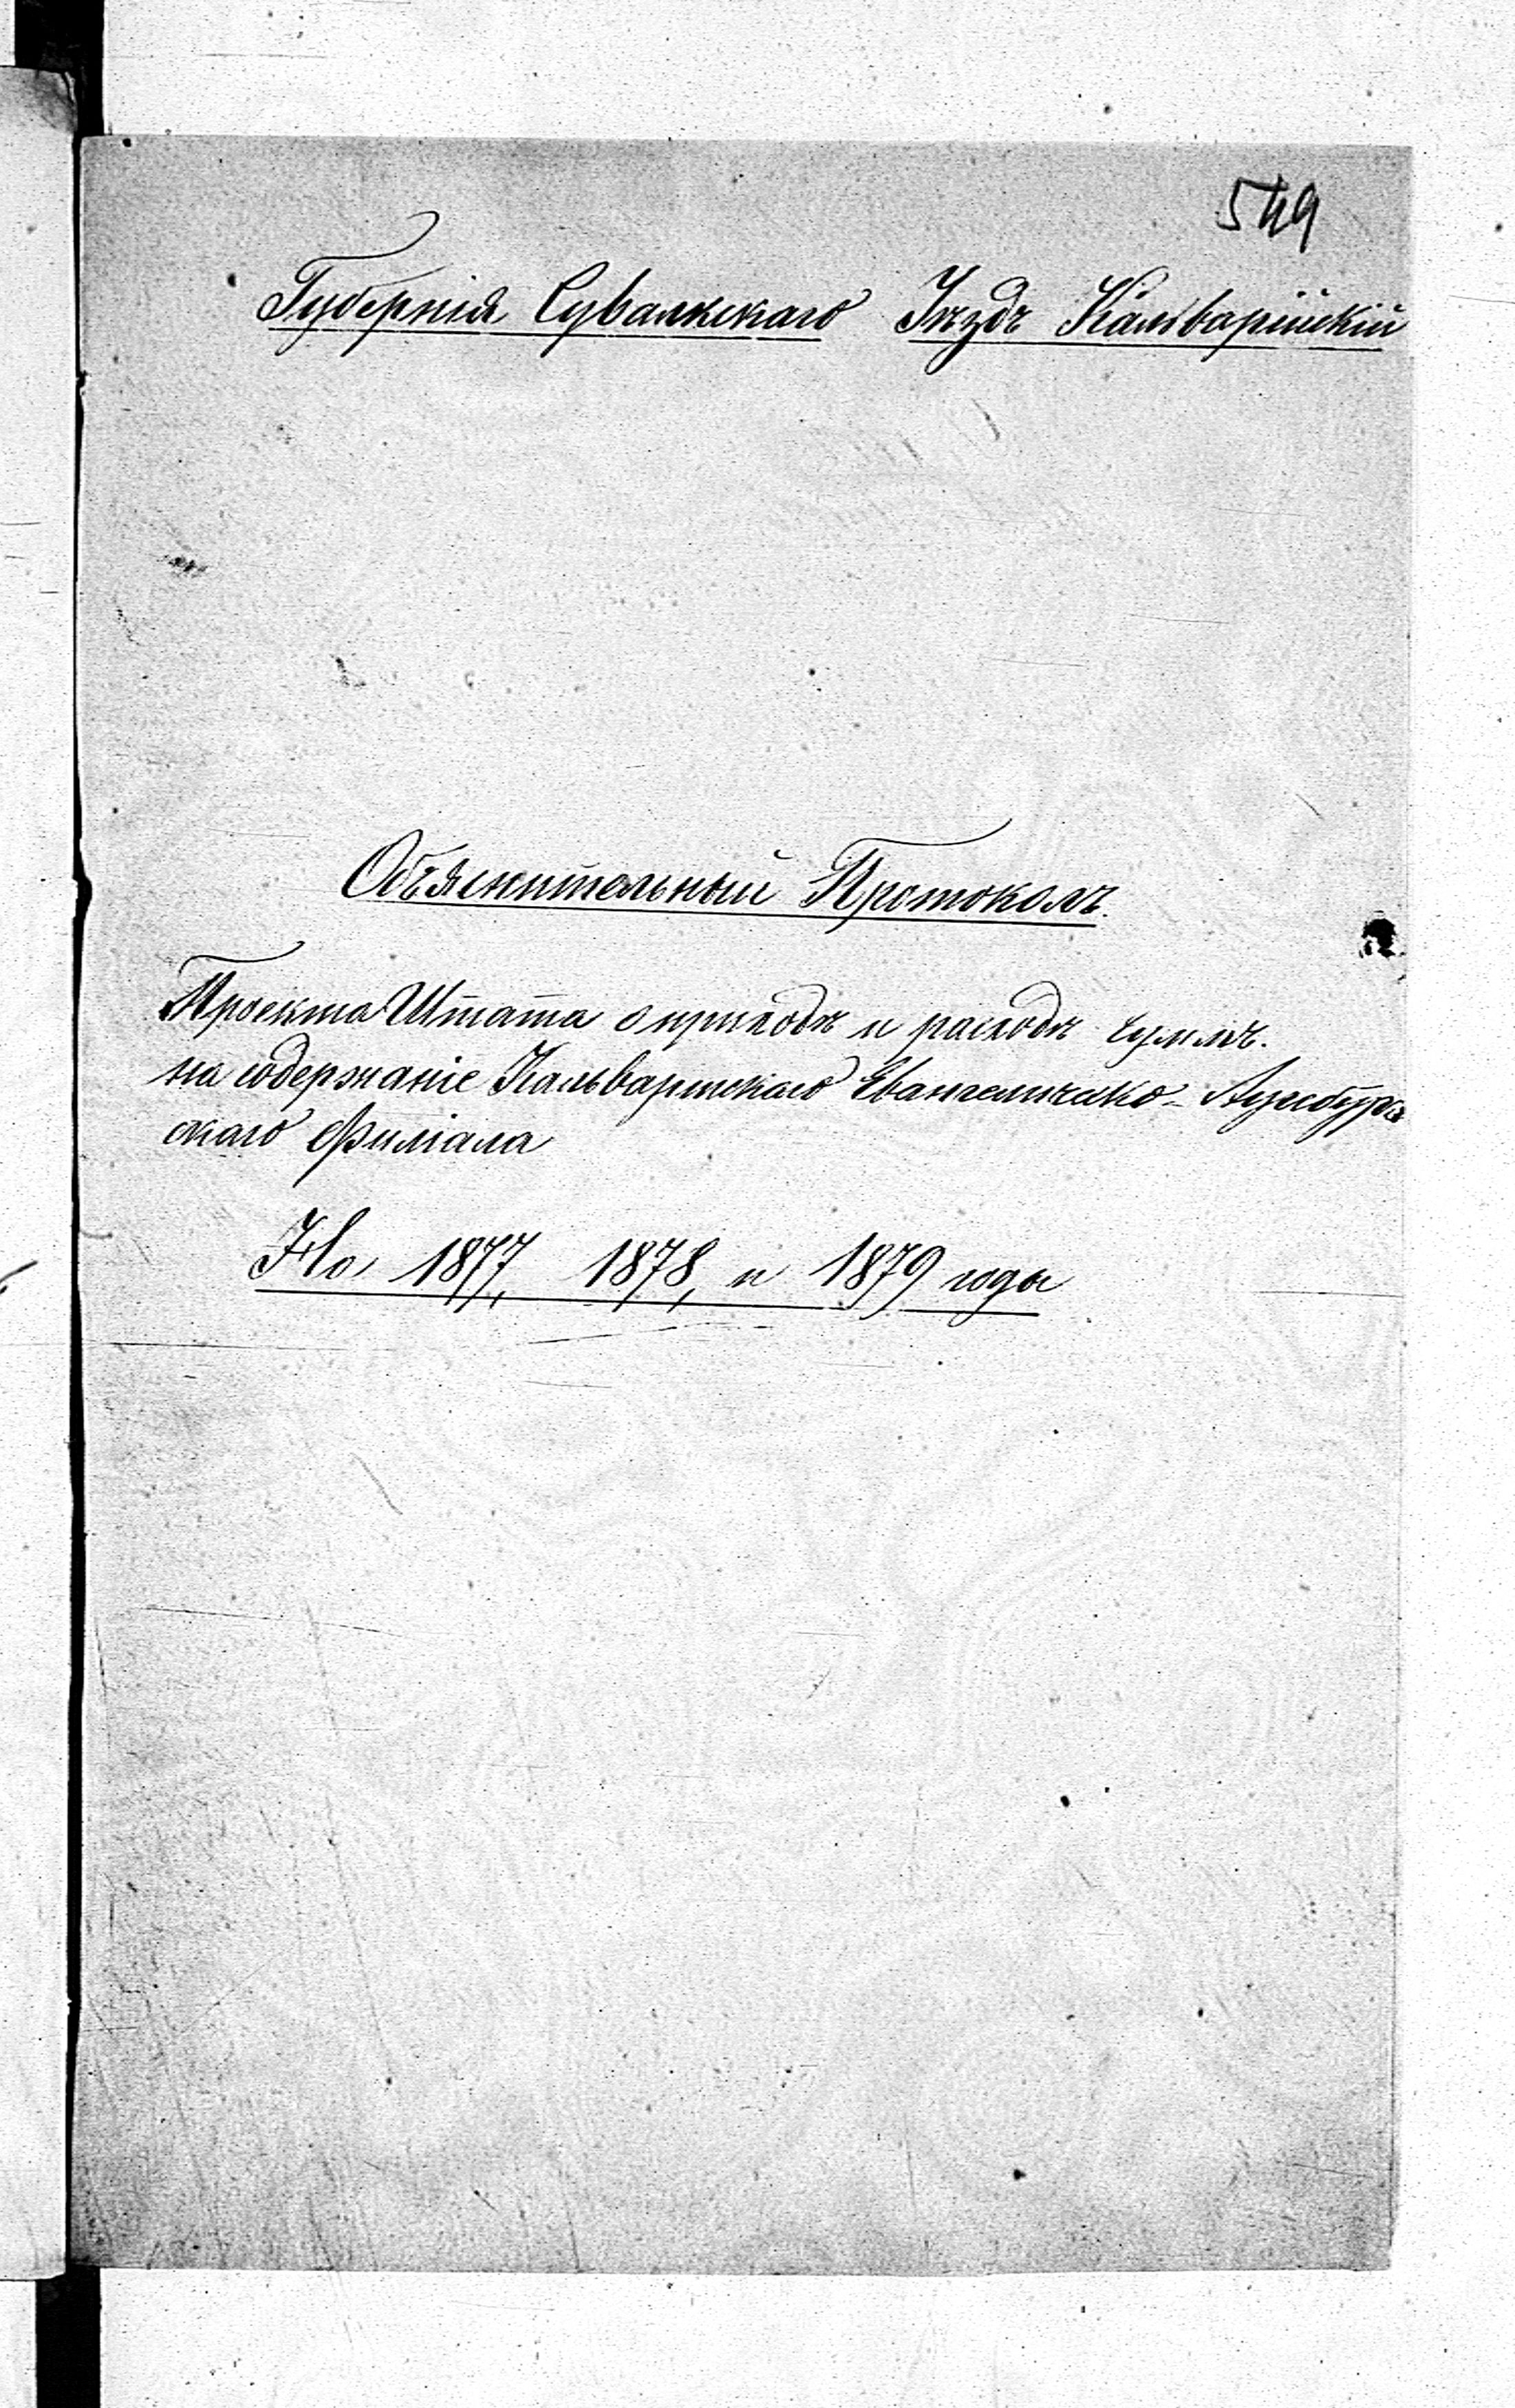 549
Губернія Сувалкскаго Уѣздъ Кальварійскій
Объяснительный Протоколъ.
Проекта Штата о приходѣ и расходѣ суммъ.
на содержаніе Кальварійскаго Евангелическо-Аугсбург
скаго Филіала
На 1877, 1878, и 1879 годы